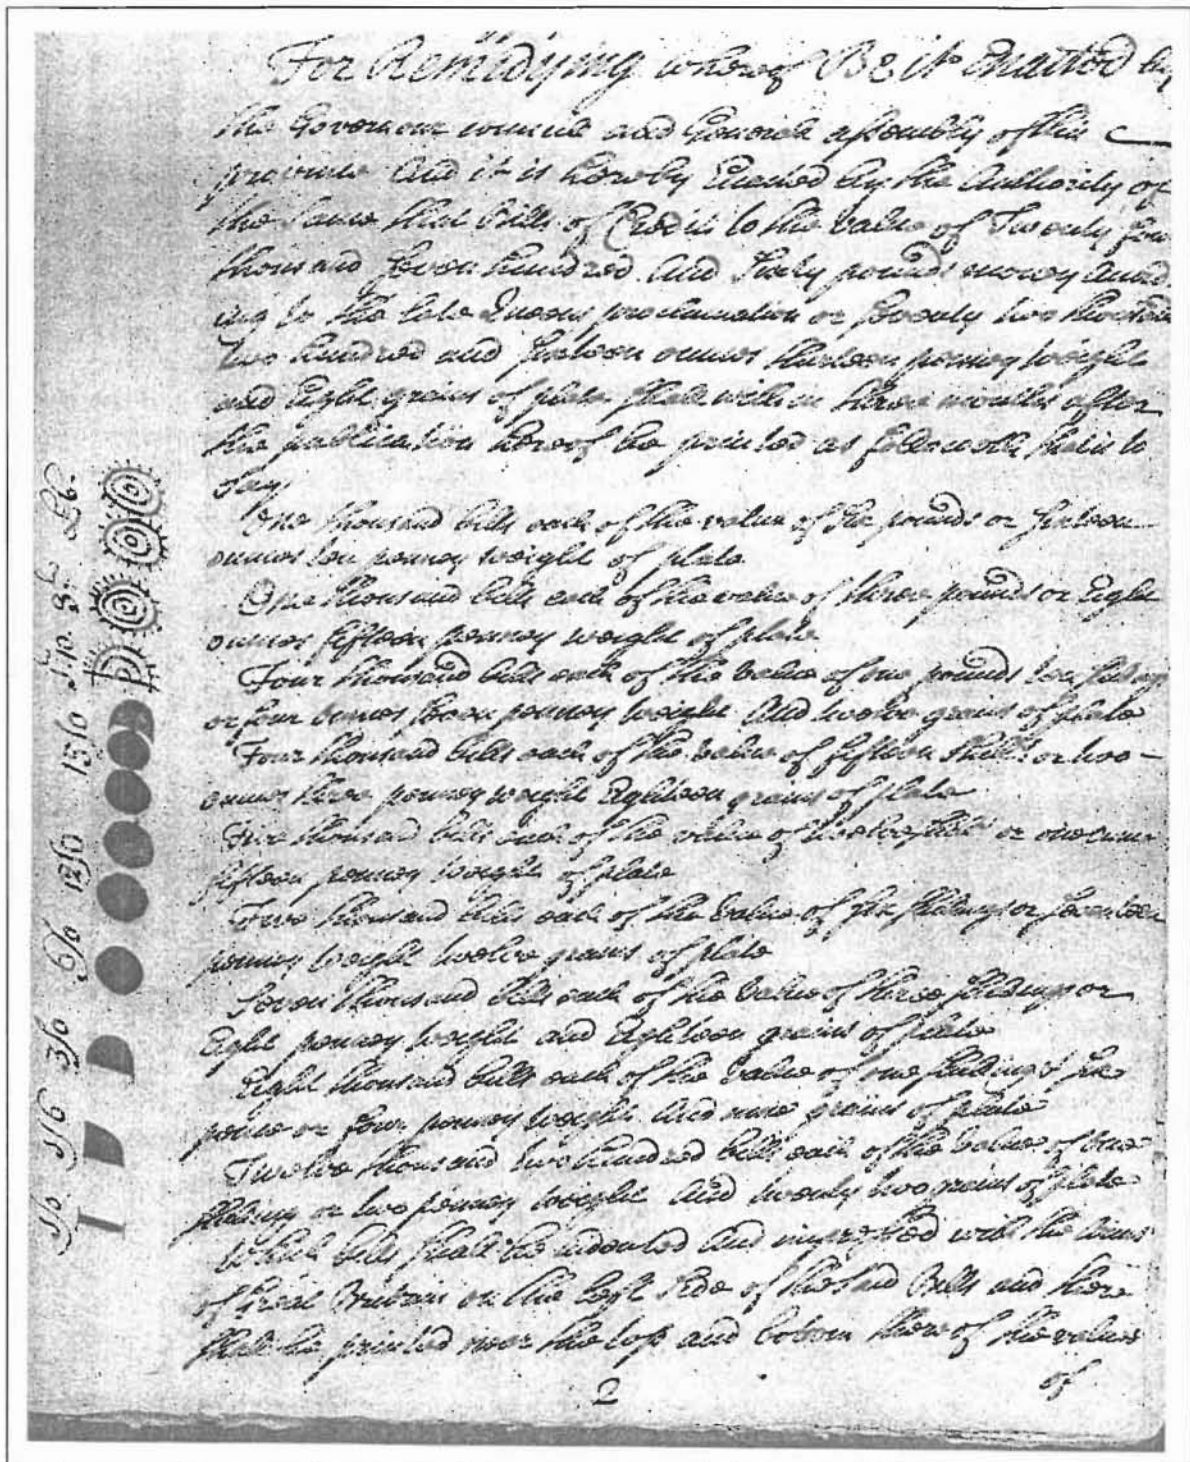 For Remidying whereof Be it Enacted by
the Governour Councill and Generall assembly of this
province And it is hereby Enacted by the Authority of
the same that bills of Credit to the value of Twenty four
thousand Seven hundred And Sixty pounds money
ing to the late Queens proclamation or Seventy two thousand
two hundred and Sixteen ounces thirteen penney weight
and Eight grains of plate shall within three months after
the publication hereof be printed as followeth that is to
Say
One thousand bills each of the value of Six pounds or Sixteen
ounces ten penney weight of plate
One thousand bills each of the value of three pounds or Eight
ounces fifteen penney weight of plate
Four thousand bills each of the value of one pounds ten
or four ounces Seven penney weight And twelve grains of plate
Four thousand bills each of the value of fifteen Shill: or two
ounces three penney weight Eighteen grains of plate
Five thousand bills each of the value of twelve or one ounce
fifteen penney weight of plate
thousand bills each of the value of Six Shillings or Seventeen
penney weight twelve grains of plate
Seven thousand bills each of the value of three Shillings or
Eight penney weight and Eighteen grains of plate
Eight thousand bills each of the value of one Shilling & Six
pence or four penney weight And nine grains of plate
Twelve thousand two hundred bills each of the value of One
Shilling or two penney weight And twenty two grains of plate
Which bills shall be indented And impressed with the Arms
of Great Britain on the left Side of the said Bills and there
shall be printed near the top and bottom thereof the value
of
2
1/0 1/6 3/0 6/0 12/0 15/0